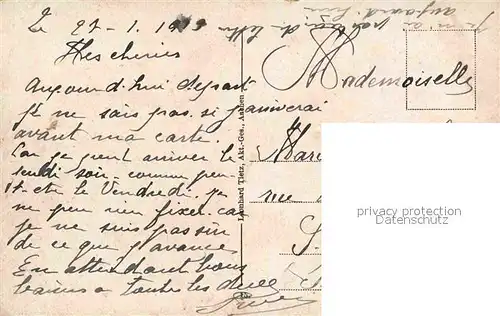 Le 27-1.19
Mes chéries
Aujourd'hui départ
je ne sais pas si j'arriverai
avant ma carte.
Car je peut arriver le
jeudi soir comme peu
t être le Vendredi, je
ne peu rien fixer car
je ne suis pas sûr
de ce que j'avance
En attendant bons
baisers a toutes les deux
je n'ai pas de lettre
aujourd'hui
Mademoiselle
Mar
rue
Leonhard Tietz, Akt.-Ges., Aachen
privacy protection
Datenschutz